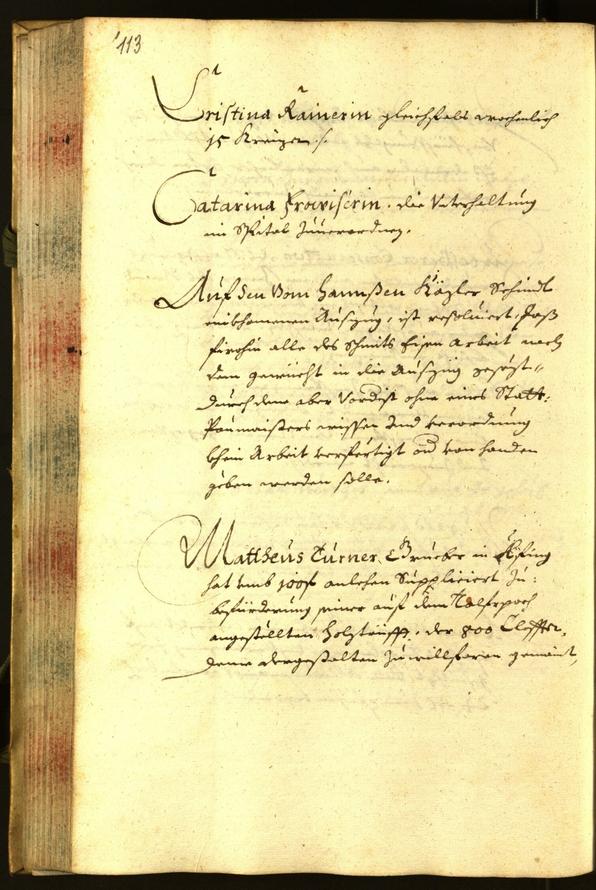 113
Cristina Rainerin gleichfals wochenlich
15 Kreizer.
Catarina Froviserin. die Vnterhaltung
im Spital zuuerordnen.
Auf den vom Hannßen Kögler Schmidt
einkhomenen Auszug, ist resoluiert, daß
firohin alle des Schmits Eisen Arbeit nach
dem gewücht in die Auszüg gesözt,
durch dene aber Vordist ohne eines Statt-
Paumaisters wissen und verordnung
khein Arbeit verfertigt und von handen
geben werden solle.
Mattheus Turner, Grueber in
hat umb 100 f anlehen Suppliciert zu
befürderung seiner auf dem
angestellten Holztrüfft, der 800 Claffter,
deme dergestalten zu willfaren gemaint,